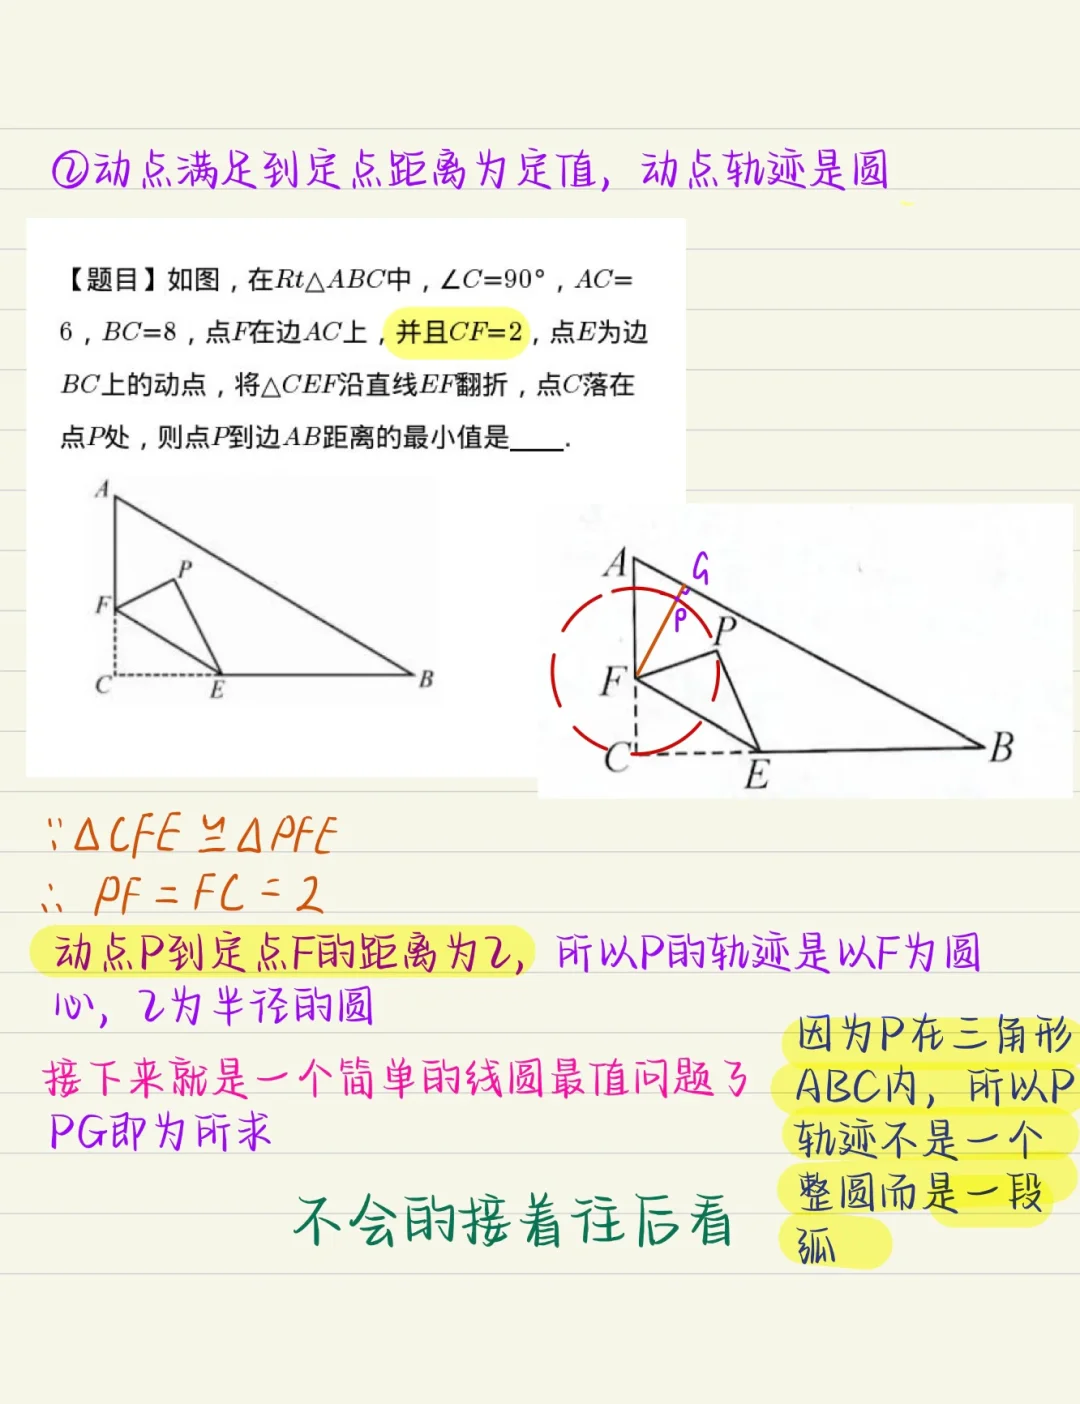 ②动点满足到定点距离为定值，动点轨迹是圆
【题目】如图，在Rt△ABC中，∠C=90°，AC=
6，BC=8，点F在边AC上，并且CF=2，点E为边
BC上的动点，将△CEF沿直线EF翻折，点C落在
点P处，则点P到边AB距离的最小值是____.
A
P
F
C
E
B
A
G
P
P
F
C
E
B
∵△CFE≌△PFE
∴ PF=FC=2
动点P到定点F的距离为2，所以P的轨迹是以F为圆
心，2为半径的圆
接下来就是一个简单的线圆最值问题了
PG即为所求
因为P在三角形
ABC内，所以P
轨迹不是一个
整圆而是一段
弧
不会的接着往后看